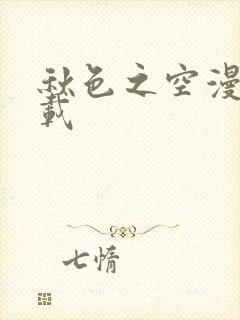 秋色之空漫
載
七情